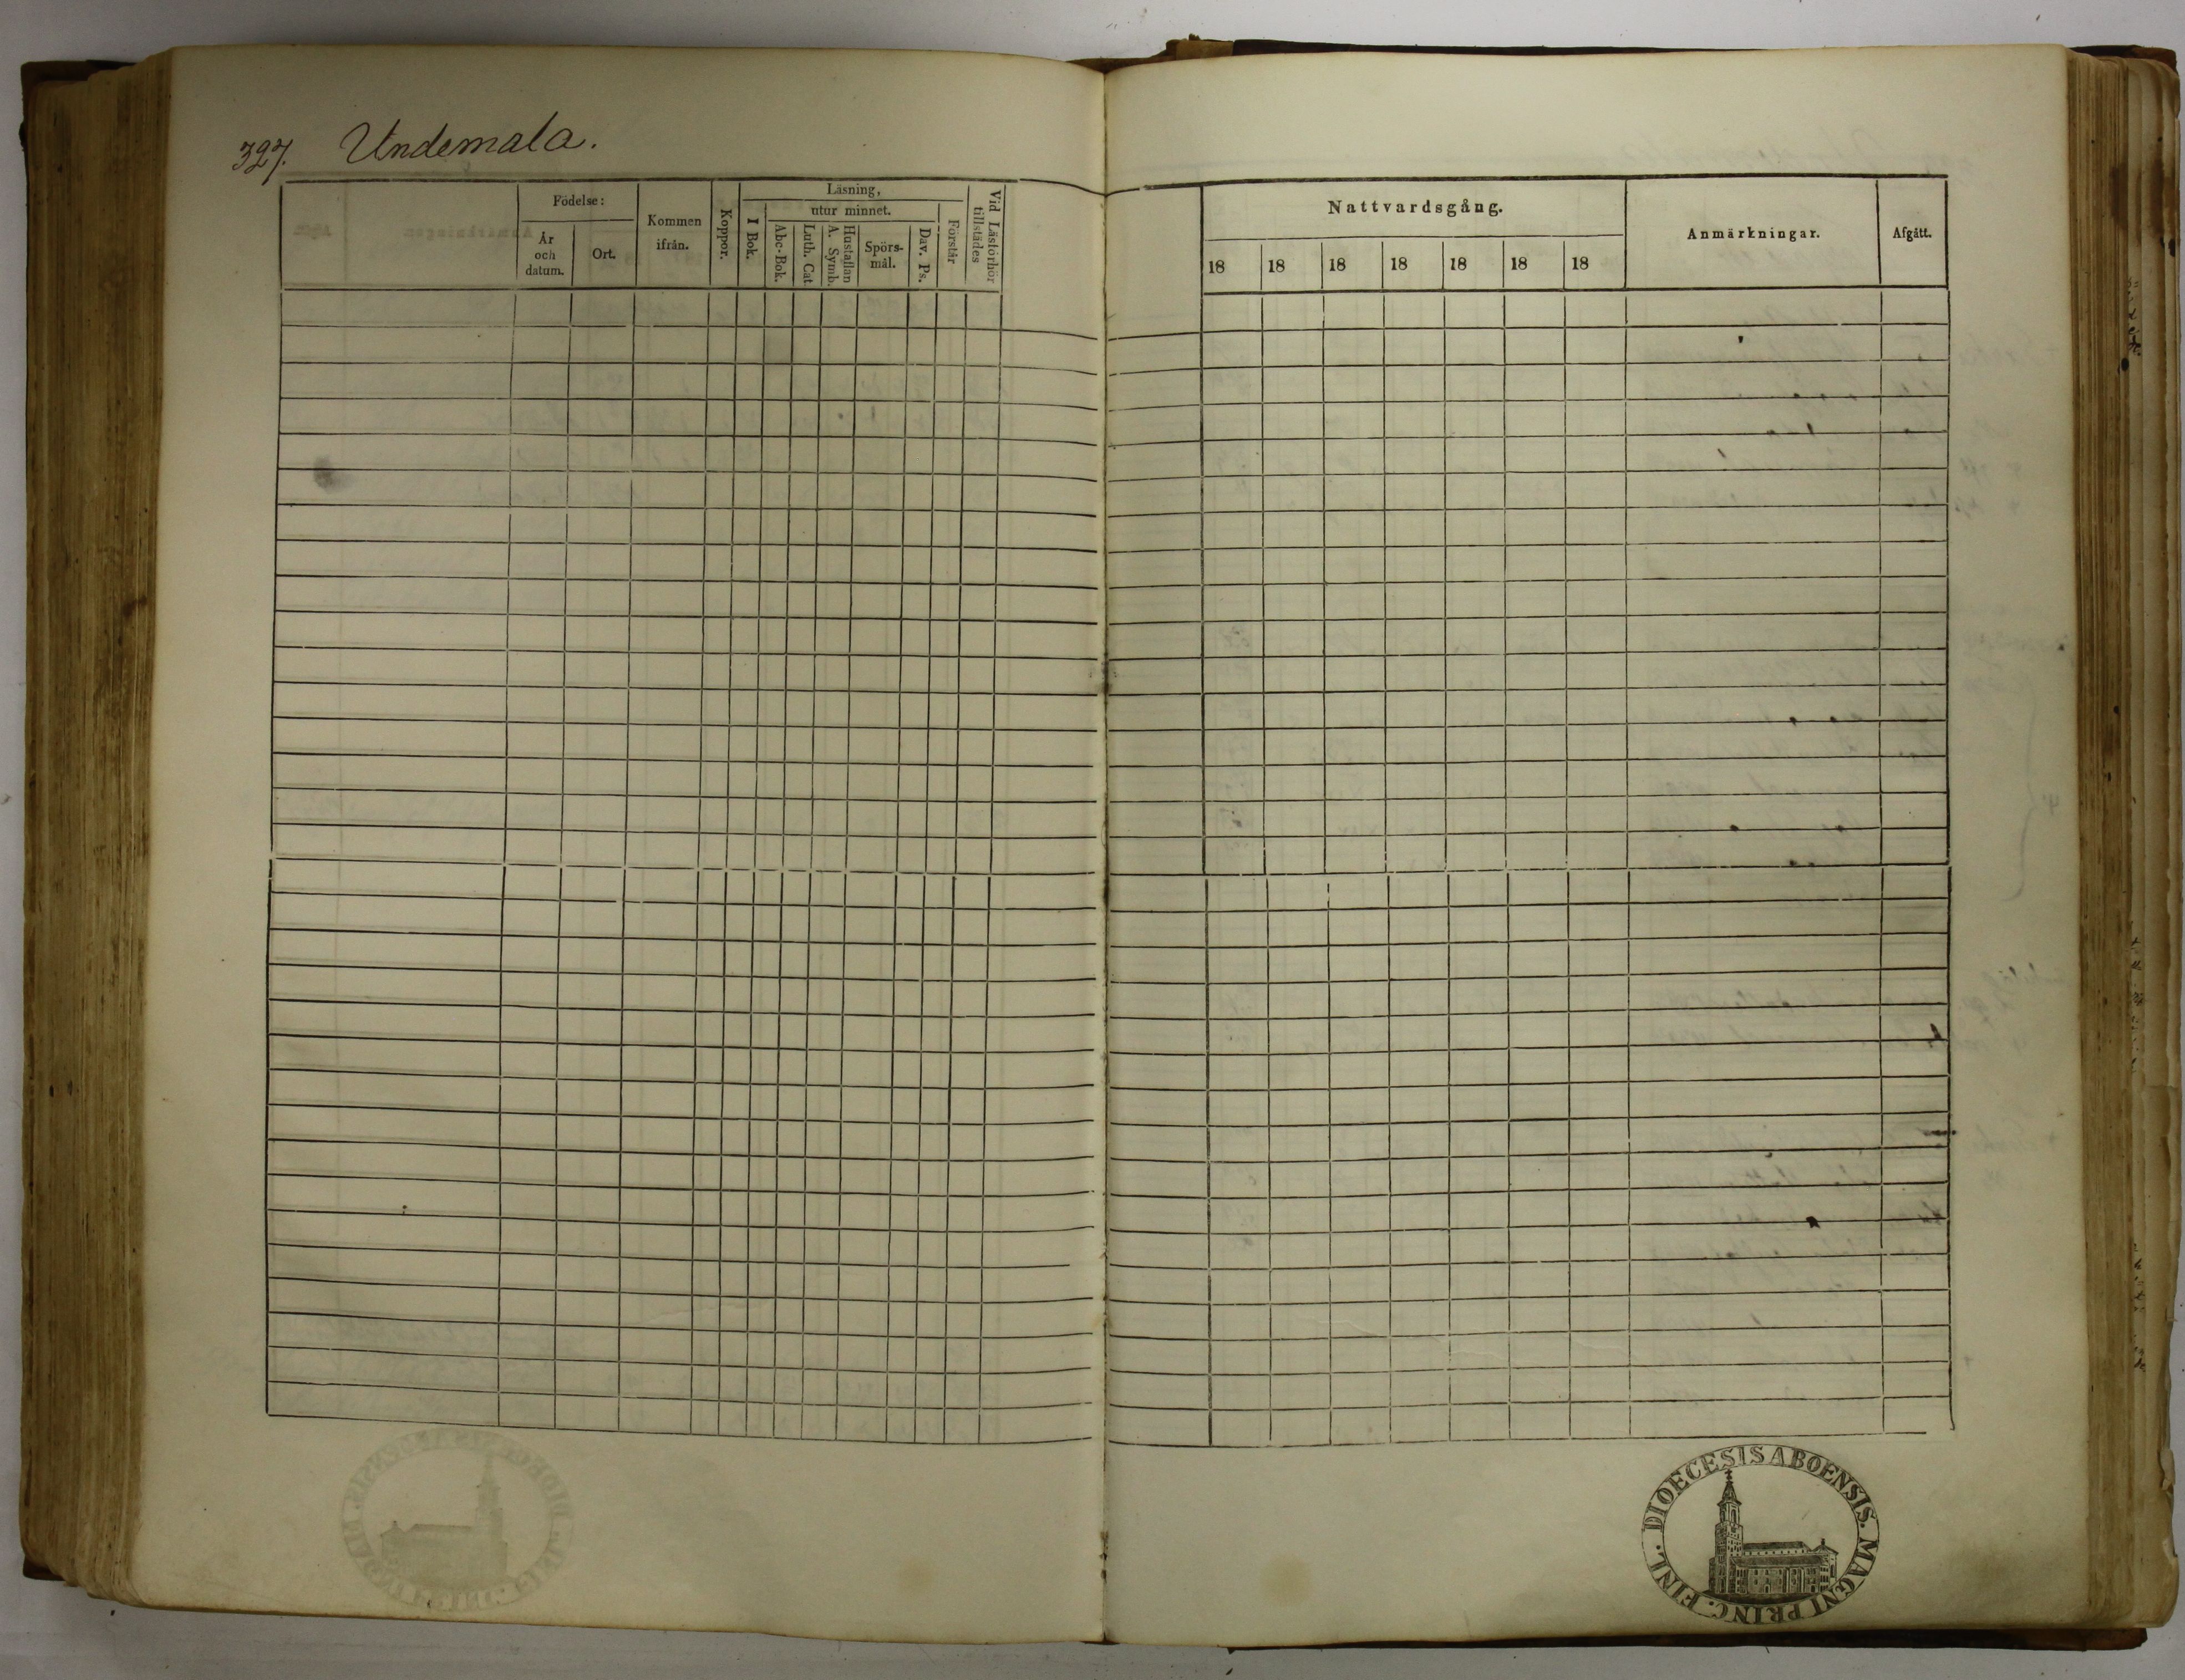 327. Undemala.
Födelse:
År och datum.
Ort.
Kommen ifrån.
Koppor.
Läsning,
I Bok.
utur minnet.
Abc-Bok.
Luth. Cat
Hustaflan A. Symb.
Spörs-mål.
Dav. Ps.
Förstår
Vid Läsförhör tillstädes
Nattvardsgång.
18 18 18 18 18 18 18
Anmärkningar.
Afgått.
DIOECESIS ABOENSIS. MAGNI PRINC. FINL.